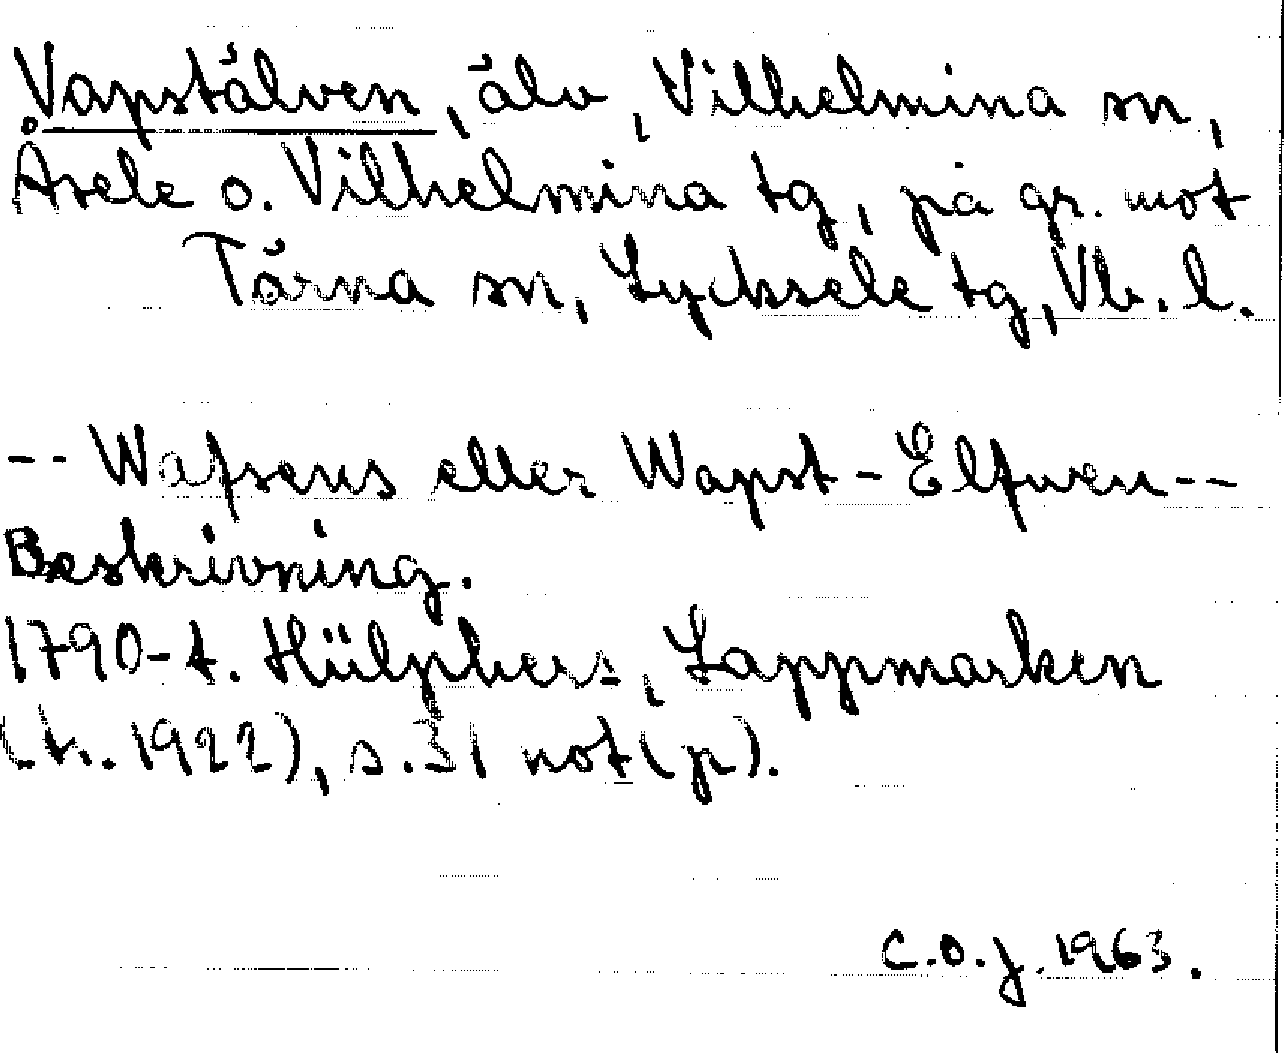 Vapstälven, älv, Vilhelmina sn,
Åsele o. Vilhelmina tg, på gr. mot
Tärna sn, Lycksele tg, Vb. l.
-- Wafsens eller Wapst-Elfwen--
Beskrivning.
1790-t. Hülphers, Lappmarken
(tr. 1922), s. 31 not (p).
C.O.J. 1963.